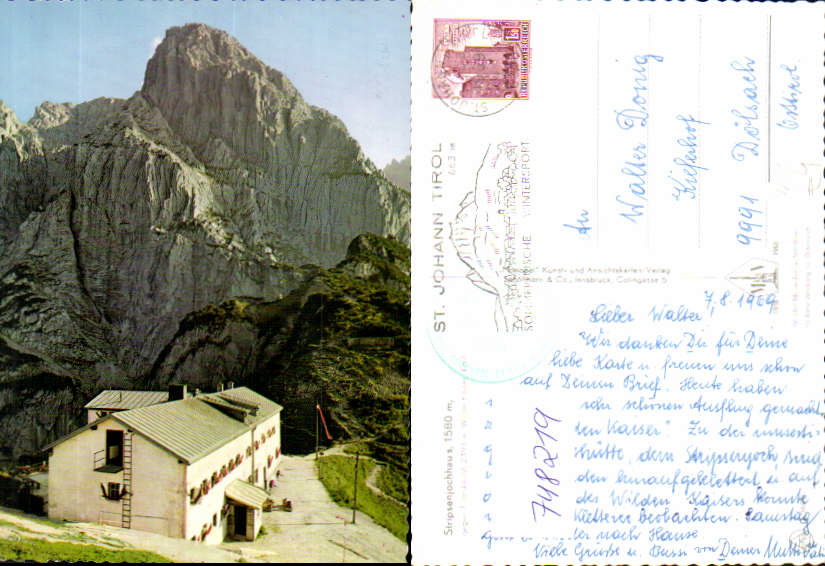 REPUBLIK ÖSTERREICH
ST. JOHANN TIROL
663 m
SOMMERFRISCHE WINTERSPORT
An
Walter Donig
Kieferhof
9991 Dölsach
Osttirol
Kunst- und Ansichtskarten-Verlag
& Co., Innsbruck, Colingasse 5
Stripsenjochhaus, 1580 m,
748219
7.8.1969
Lieber Walter,
Wir danken Dir für Deine
liebe Karte u. freuen uns schon
auf Deinen Brief. Heute haben
sehr schönen Ausflug gemacht
den Kaiser". Zu der
hütte, dem Stripsenjoch, sind
den hinaufgeklettert u. auf
des Wilden Kaisers konnte
Kletterer beobachten. Samstag
wieder nach Hause
Viele Grüsse u. Bussi von Deiner Mutti